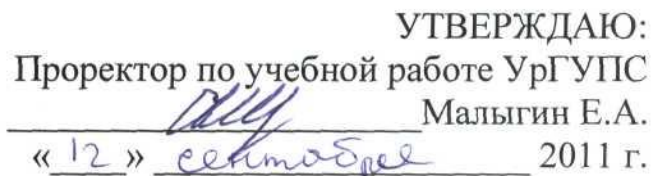 УТВЕРЖДАЮ:
Проректор по учебной работе УрГУПС
Малыгин Е.А.
« 12 » сентября 2011 г.